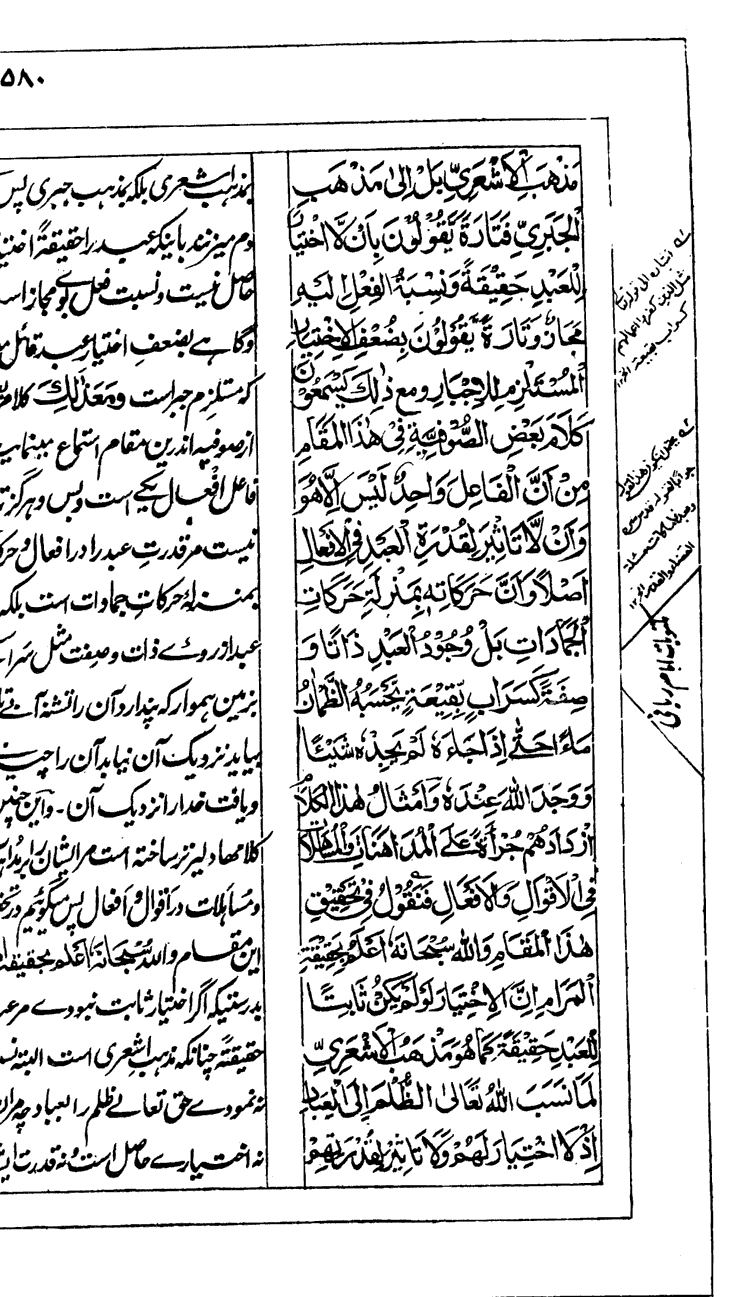 ۵۸۰
مَذْهَبِ الْاَشْعَرِيِّ بَلْ اِلٰى مَذْهَبِ
الْجَبَرِيِّ فَتَارَةً يَّقُوْلُوْنَ بِاَنْ لَّا اخْتِيَارَ
لِلْعَبْدِ حَقِيْقَةً وَنِسْبَةُ الْفِعْلِ اِلَيْهِ
مَجَازٌ وَتَارَةً يَّقُوْلُوْنَ بِضُعْفِ الْاِخْتِيَارِ
الْمُسْتَلْزِمِ لِلْاِجْبَارِ وَمَعَ ذٰلِكَ يَسْمَعُوْنَ
كَلَامَ بَعْضِ الصُّوْفِيَّةِ فِيْ هٰذَا الْمَقَامِ
مِنْ اَنَّ الْفَاعِلَ وَاحِدٌ لَيْسَ اِلَّا هُوَ
وَاَنْ لَّا تَاثِيْرَ لِقُدْرَةِ الْعَبْدِ فِي الْاَفْعَالِ
اَصْلًا وَاَنَّ حَرَكَاتِهٖ بِمَنْزِلَةِ حَرَكَاتِ
الْجَمَادَاتِ بَلْ وُجُوْدُ الْعَبْدِ ذَاتًا وَ
صِفَةً كَسَرَابٍ بِقِيْعَةٍ يَحْسَبُهُ الظَّمْاٰنُ
مَاءً حَتّٰى اِذَا جَاءَهٗ لَمْ يَجِدْهُ شَيْئًا
وَوَجَدَ اللهَ عِنْدَهٗ وَاَمْثَالُ هٰذَا الْكَلَامِ
اَزْدَادَهُمْ جُرْأَةً عَلَى الْمُدَاهَنَاتِ وَالْمُسَاهَلَاتِ
فِي الْاَقْوَالِ وَالْاَفْعَالِ فَنَقُوْلُ فِيْ تَحْقِيْقِ
هٰذَا الْمَقَامِ وَاللهُ سُبْحَانَهٗ اَعْلَمُ بِحَقِيْقَةِ
الْمَرَامِ اِنَّ الْاِخْتِيَارَ لَوْ لَمْ يَكُنْ ثَابِتًا
لِلْعَبْدِ حَقِيْقَةً كَمَا هُوَ مَذْهَبُ الْاَشْعَرِيِّ
لَمَا نَسَبَ اللهُ تَعَالٰى الظُّلْمَ اِلَى الْعِبَادِ
اِذْ لَا اخْتِيَارَ لَهُمْ وَلَا تَاثِيْرَ لِقُدْرَتِهِمْ
بمذہب اشعری بلکہ بمذہب جبری پس
دم میزنند باینکہ عبد را حقیقةً
حاصل نیست و نسبت فعل بوے مجاز
و گاہے بضعف اختیار عبد قائل
کہ مستلزم جبر است ومَعَ ذٰلِكَ
از صوفیہ اندرین مقام استماع
فاعل افعال یکے است و بس و ہرگز
نیست مر قدرتِ عبد را در افعال و
بمنزلۂ حرکاتِ جمادات است بلکہ
عبد از روئے ذات و صفت مثل
بزمین ہموار کہ پندارد آن را تشنہ
بیاید نزدیک آن نیابد آن را
و یافت خدا را نزدیک آن ـ و این
کلامھا دلیر تر ساختہ است مر ایشان را
و مساہلات در اقوال و افعال پس میگوئیم
این مقام وَاللهُ سُبْحَانَهٗ اَعْلَمُ
بدرستیکہ اگر اختیار ثابت نبودے
حقیقتةً چنانکہ مذہب اشعری است البتہ
نہ نمودے حق تعالےٰ ظلم را بعباد چہ
نہ اختیارے حاصل است و نہ قدرت
مکتوبات امام ربانی